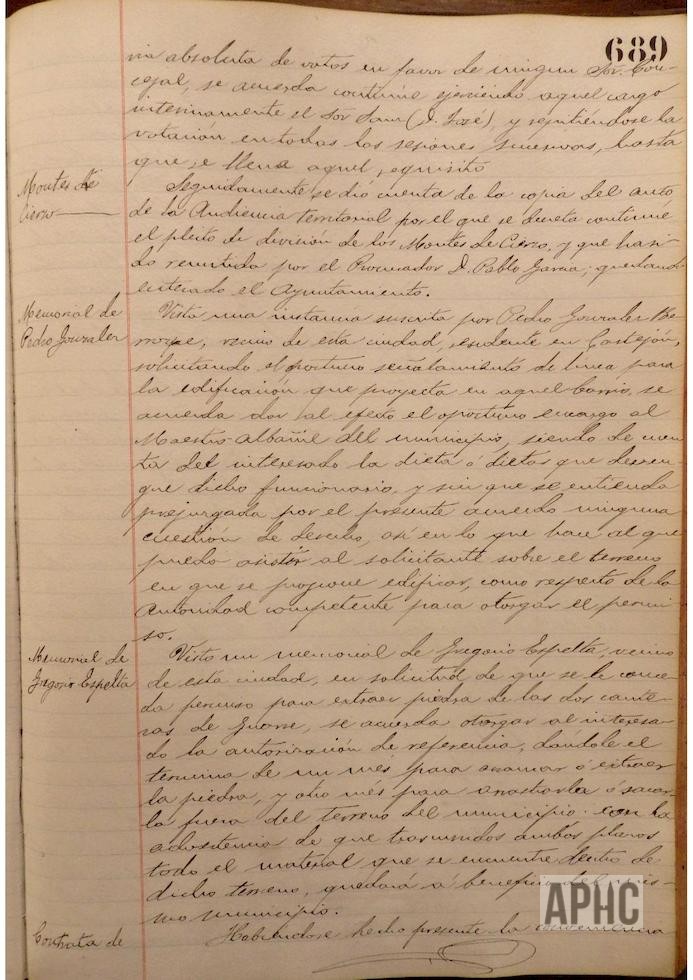 689
ria absoluta de votos en favor de ningun Sor. Con-
cejal, se acuerda continúe ejerciendo aquel cargo
interinamente el Sor Sanz (D. José), y repitiéndose la
votación en todas las sesiones sucesivas, hasta
que se llene aquel requisito
Montes de
Cierzo
Seguidamente se dió cuenta de la copia del auto
de la Audiencia territorial por el que se decreta continúe
el pleito de división de los Montes de Cierzo, y que ha si-
do remitida por el Procurador D. Pablo García; quedando
enterado el Ayuntamiento.
Memorial de
Pedro Gonzalez
Vista una instancia suscrita por Pedro Gonzalez
vecino de esta ciudad, residente en Castejón,
solicitando el oportuno señalamiento de linea para
la edificación que proyecta en aquel barrio, se
acuerda dar al efecto el oportuno encargo al
Maestro-Albañil del municipio, siendo de cuen-
ta del interesado la dieta ó dietas que deven-
gue dicho funcionario, y sin que se entienda
prejuzgada por el presente acuerdo ninguna
cuestión de derecho, así en lo que hace al que
pueda asistir al solicitante sobre el terreno
en que se propone edificar, como respecto de la
Autoridad competente para otorgar el permi-
so.
Memorial de
Gregorio Espelta
Visto un memorial de Gregorio Espelta, vecino
de esta ciudad, en solicitud de que se le conce-
da permiso para extraer piedra de las dos cante-
ras de se acuerda otorgar al interesa-
do la autorización de referencia, dándole el
término de un més para arrancar ó extraer
la piedra, y otro més para arrastrarla ó sacar-
la fuera del terreno del municipio con la
advertencia de que trascurridos ambos plazos
todo el material que se encuentre dentro de
dicho terreno, quedará á beneficio del mis-
mo municipio.
Contrata de
Habiéndose hecho presente la conveniencia
APHC